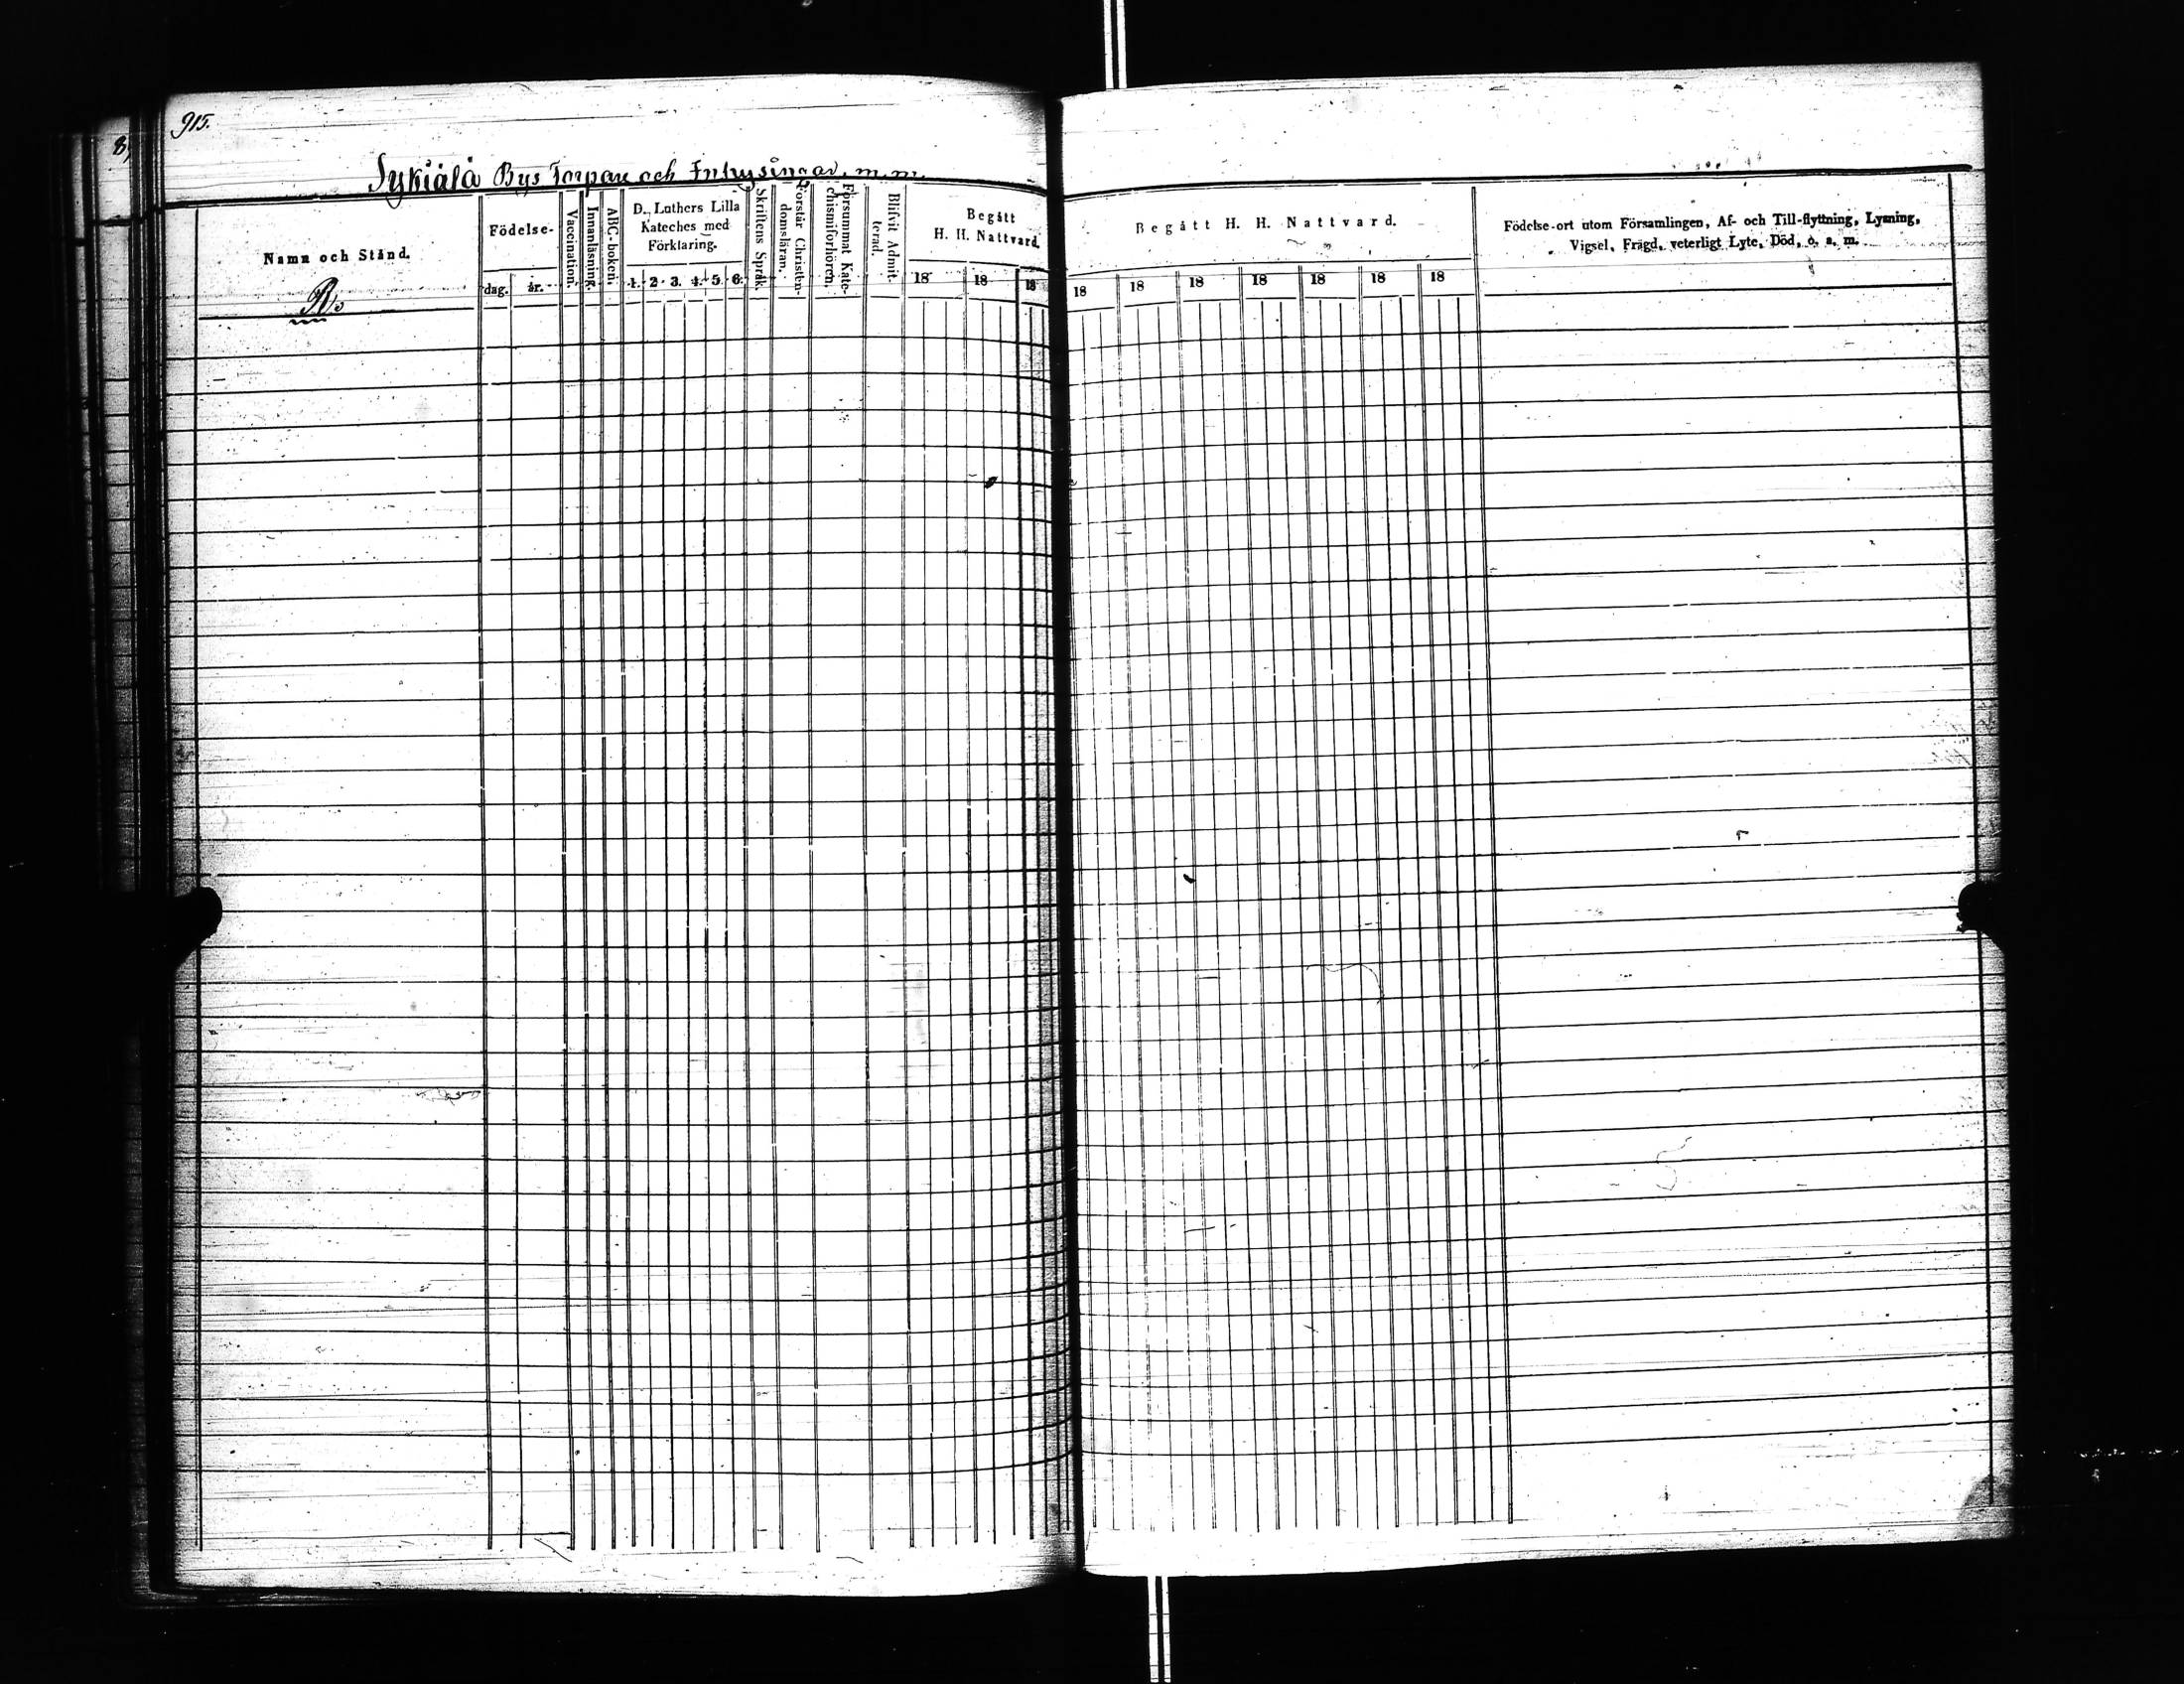 915.
8,
Sykiälä Bys Torpare och Inhysingar. m. m.
Namn och Stånd.
R.
Födelse-
dag.
år.
Vaccination.
Innanläsning.
ABC-boken:
D. Luthers Lilla
Kateches med
Förklaring.
1. 2. 3. 4. 5. 6.
Skriftens Språk.
Förstår Christen-
domsläran.
Försummat Kate-
chismiförhören.
Blifvit Admit-
terad.
Begått
H. H. Nattvard.
18 18 18
Begått H. H. Nattvard.
18 18 18 18 18 18 18
Födelse-ort utom Församlingen, Af- och Till-flyttning, Lysning,
Vigsel, Frägd, veterligt Lyte, Död, o. s. m.